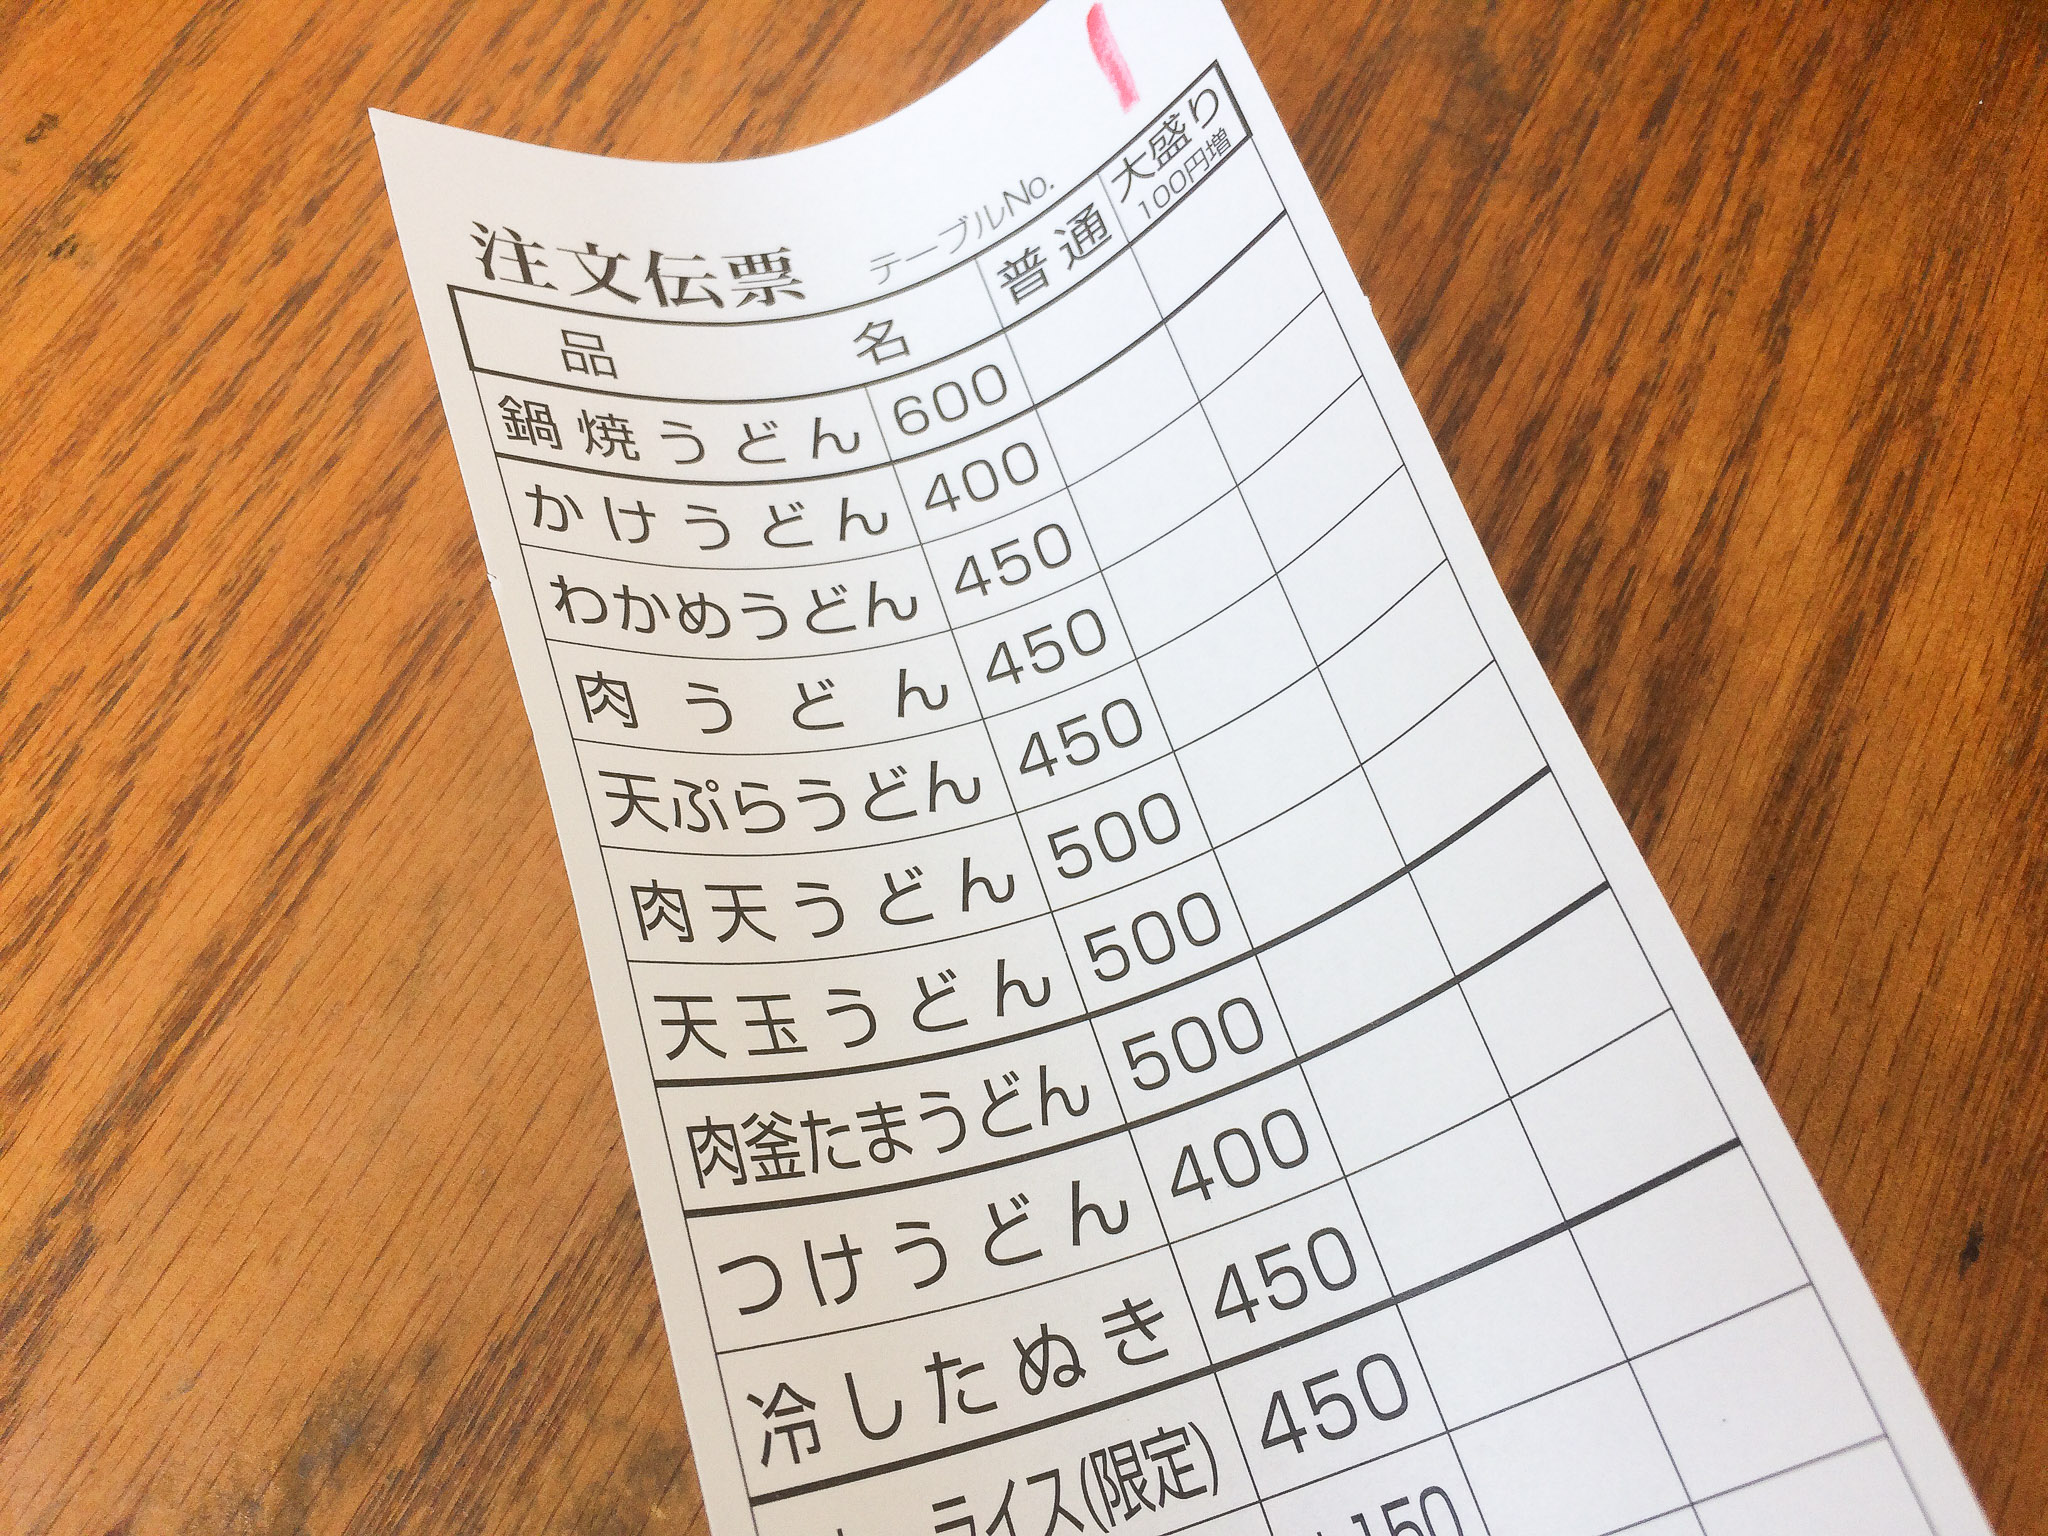 注文伝票 テーブルNo. 1
品名 普通 大盛り 100円増
鍋焼うどん 600
かけうどん 400
わかめうどん 450
肉うどん 450
天ぷらうどん 450
肉天うどん 500
天玉うどん 500
肉釜たまうどん 500
つけうどん 400
冷したぬき 450
ライス(限定) 450
150